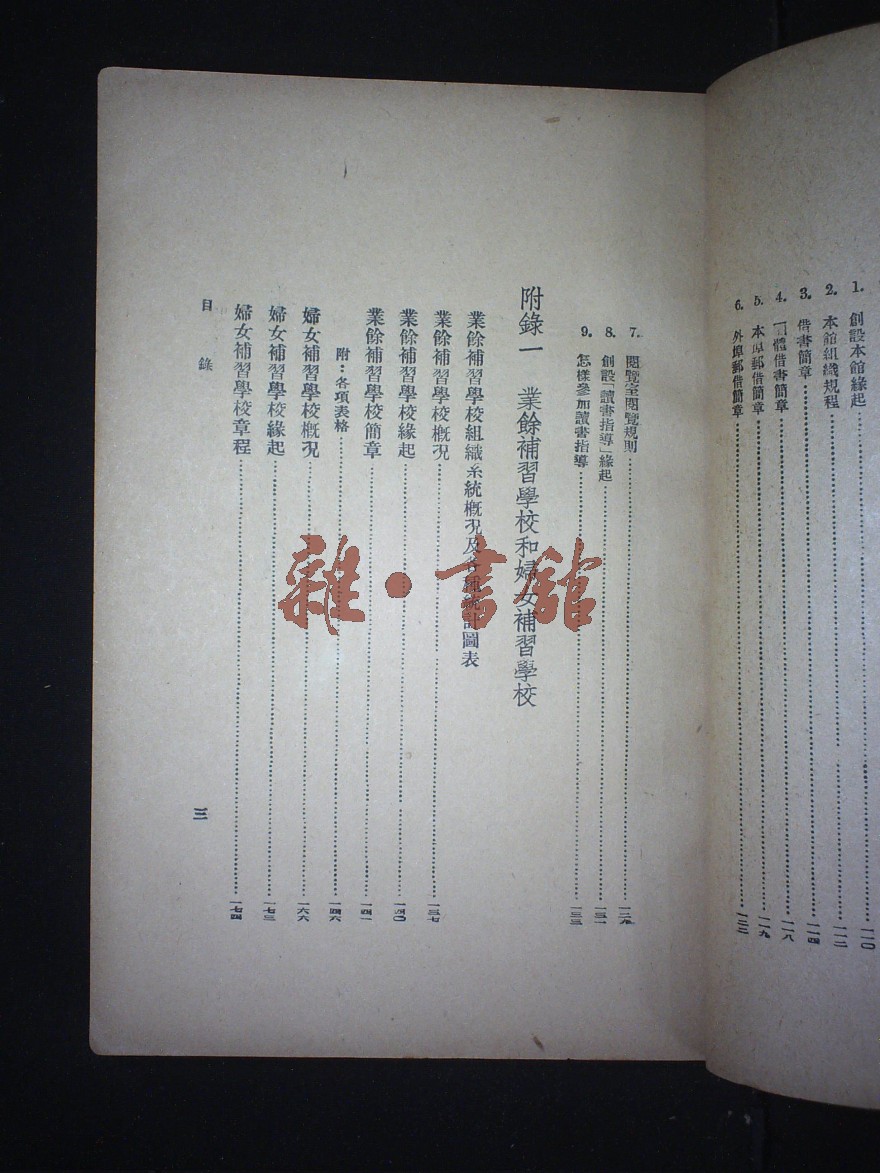 1. 創設本館緣起……一一〇
2. 本館組織規程……一一二
3. 借書簡章……一一四
4. 團體借書簡章……一一八
5. 本埠郵借簡章……一一九
6. 外埠郵借簡章……一二二
7. 閱覽室閱覽規則……一二九
8. 創設「讀書指導」緣起……一三一
9. 怎樣參加讀書指導……一三三
附錄一 業餘補習學校和婦女補習學校
業餘補習學校組織系統概況及各組統計圖表
業餘補習學校概況……一三七
業餘補習學校緣起……一四〇
業餘補習學校簡章……一四一
附：各項表格……一四六
婦女補習學校概況……一六六
婦女補習學校緣起……一七三
婦女補習學校章程……一七四
目錄
三
雜·書館